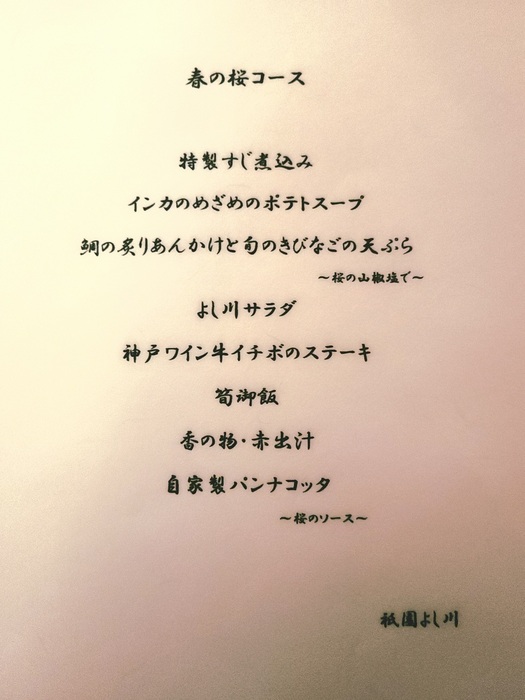 春の桜コース
特製すじ煮込み
インカのめざめのポテトスープ
鯛の炙りあんかけと旬のきびなごの天ぷら
～桜の山椒塩で～
よし川サラダ
神戸ワイン牛イチボのステーキ
筍御飯
香の物・赤出汁
自家製パンナコッタ
～桜のソース～
祇園よし川